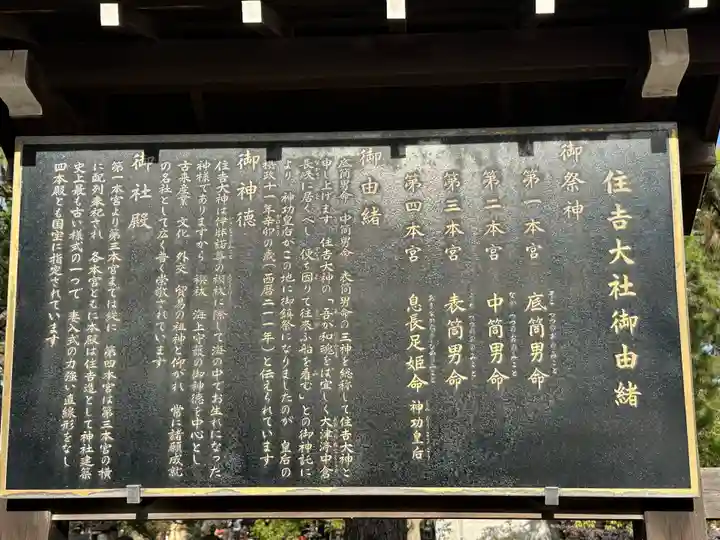 住吉大社御由緒
御祭神
第一本宮 底筒男命
そこつつのおのみこと
第二本宮 中筒男命
なかつつのおのみこと
第三本宮 表筒男命
うわつつのおのみこと
第四本宮 息長足姫命 神功皇后
おきながたらしひめのみこと
御由緒
底筒男命 中筒男命 表筒男命の三神を総称して住吉大神と
申し上げます 住吉大神の「吾が和魂をば宜しく大津渟中倉
長峡に居くべし 便ち因りて往来ふ船を看む」との御神託に
より 神功皇后がこの地に御鎮祭になりましたのが 皇后の
摂政十一年辛卯の歳(西暦二一一年)と伝えられています
御神徳
住吉大神は伊弉諾尊の禊祓に際して海の中でお生れになった
神様でありますから 禊祓 海上守護の御神徳を中心とし
古来産業 文化 外交 貿易の祖神と仰がれ 常に諸願成就
の名社として広く普く崇敬されています
御社殿
第一本宮より第三本宮までは縦に 第四本宮は第三本宮の横
に配列奉祀され 各本宮ともに本殿は住吉造として神社建築
史上最も古い様式の一つで 妻入式の力強い直線形をなし
四本殿とも国宝に指定されています